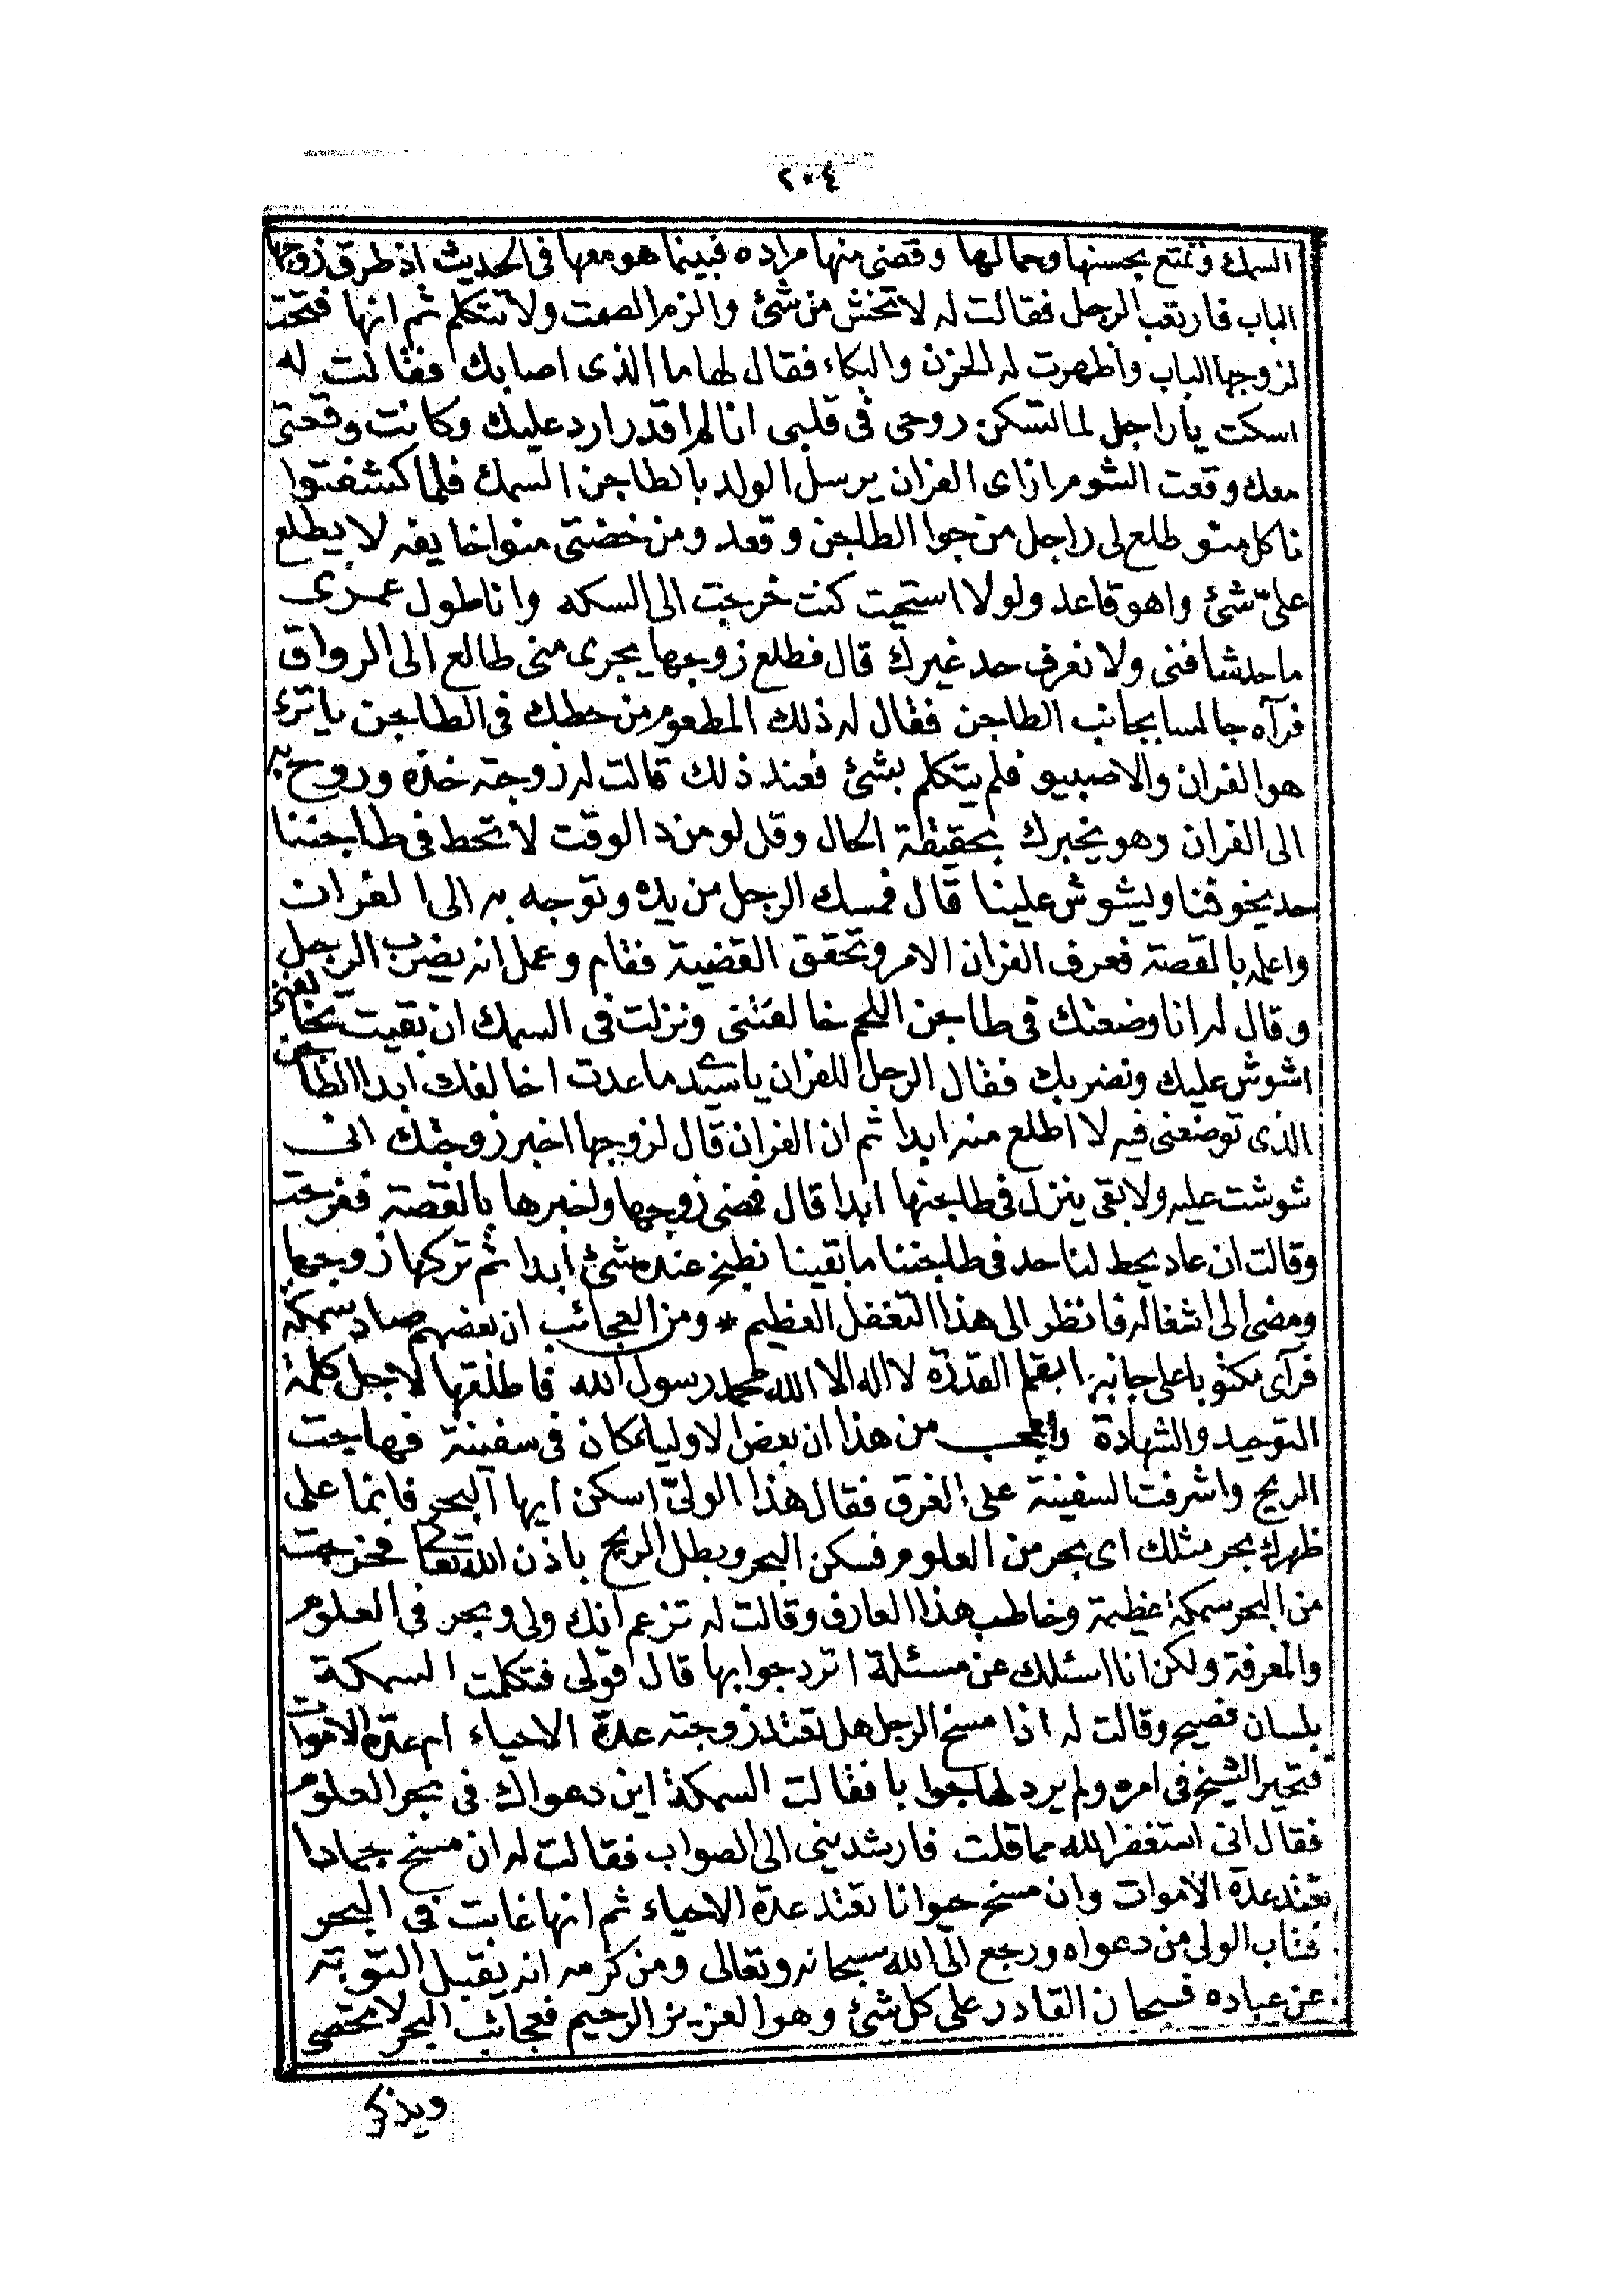 ٢٠٤
السمك وتمتع بحسنها وجمالها وقضى منها مراده فبينما هو معها فى الحديث اذ طرق زوجها
الباب فارتعب الرجل فقالت له لا تخش من شئ والزم الصمت ولا تتكلم ثم انها فتحت
لزوجها الباب واظهرت له الحزن والبكاء فقال لها ما الذى اصابك فقالت له
اسكت ياراجل لما تسكن روحى فى قلبى انا لم اقدر ارد عليك وكانت وقعتى
معك وقعت الشوم ازاى الفران يرسل الولد بالطاجن السمك فلما كشفتوا
ناكل منو طلع لى راجل من جوا الطاجن وقعد ومن خضتى منوا خايفه لا يطلع
علىّ شئ واهو قاعد ولولا استحيت كنت خرجت الى السكه وانا طول عمرى
ما حدشافنى ولا نعرف حد غيرك قال فطلع زوجها يجرى منى طالع الى الرواق
فرآه جالسا بجانب الطاجن فقال له ذلك المطعوم من حطك فى الطاجن ياترى
هو الفران والا صبيو فلم يتكلم بشئ فعند ذلك قالت له زوجته خذه وروح به
الى الفران وهو يخبرك بحقيقة الحال وقل لو من د الوقت لا تحط فى طاجننا
حد يخوفنا ويشوش علينا قال فمسك الرجل من يده وتوجه به الى الفران
واعلمه بالقصة فعرف الفران الامر وتحقق القضية فقام وعمل انه يضرب الرجل
وقال له انا وضعتك فى طاجن اللحم خالفتنى ونزلت فى السمك ان بقيت تخالفنى
اشوش عليك ونضربك فقال الرجل للفران ياسيدى ما عدت اخالفك ابدا الطاجن
الذى توضعنى فيه لا اطلع منه ابدا ثم ان الفران قال لزوجها اخبر زوجتك انى
شوشت عليه ولا بقى ينزل فى طاجنها ابدا قال فمضى زوجها واخبرها بالقصة ففرحت
وقالت ان عاد يحط لنا حد فى طاجننا ما بقينا نطبخ عنده شئ ابدا ثم تركها زوجها
ومضى الى اشغاله فانظر الى هذا التغفل العظيم * ومن العجائب ان بعضهم صاد سمكة
فرآى مكتوبا على جانبها بقلم القدرة لا اله الا الله محمد رسول الله فاطلقها لاجل كلمة
التوحيد والشهادة واعجب من هذا ان بعض الاولياء كان فى سفينة فهاجت
الريح واشرفت السفينة على الغرق فقال هذا الولىّ اسكن ايها البحر فانما على
ظهرك بحر مثلك اى بحر من العلوم فسكن البحر وبطل الريح باذن الله تعالى فخرجت
من البحر سمكة عظيمة وخاطب هذا العارف وقالت له تزعم انك ولى وبحر فى العلوم
والمعرفة ولكن انا اسئلك عن مسئلة اترد جوابها قال قولى فتكلمت السمكة
بلسان فصيح وقالت له اذا مسخ الرجل هل تعتد زوجته عدة الاحياء ام عدة الاموات
فتحير الشيخ فى امره ولم يرد لها جوابا فقالت السمكة اين دعواك فى بحر العلوم
فقال انى استغفر الله مما قلت فارشدينى الى الصواب فقالت له ان مسخ جمادا
تعتد عدة الاموات وان مسخ حيوانا تعتد عدة الاحياء ثم انها غابت فى البحر
فتاب الولى من دعواه ورجع الى الله سبحانه وتعالى ومن كرمه انه يقبل التوبة
عن عباده فسبحان القادر على كل شئ وهو العزيز الرحيم فعجائب البحر لا تحصى
ويذكر